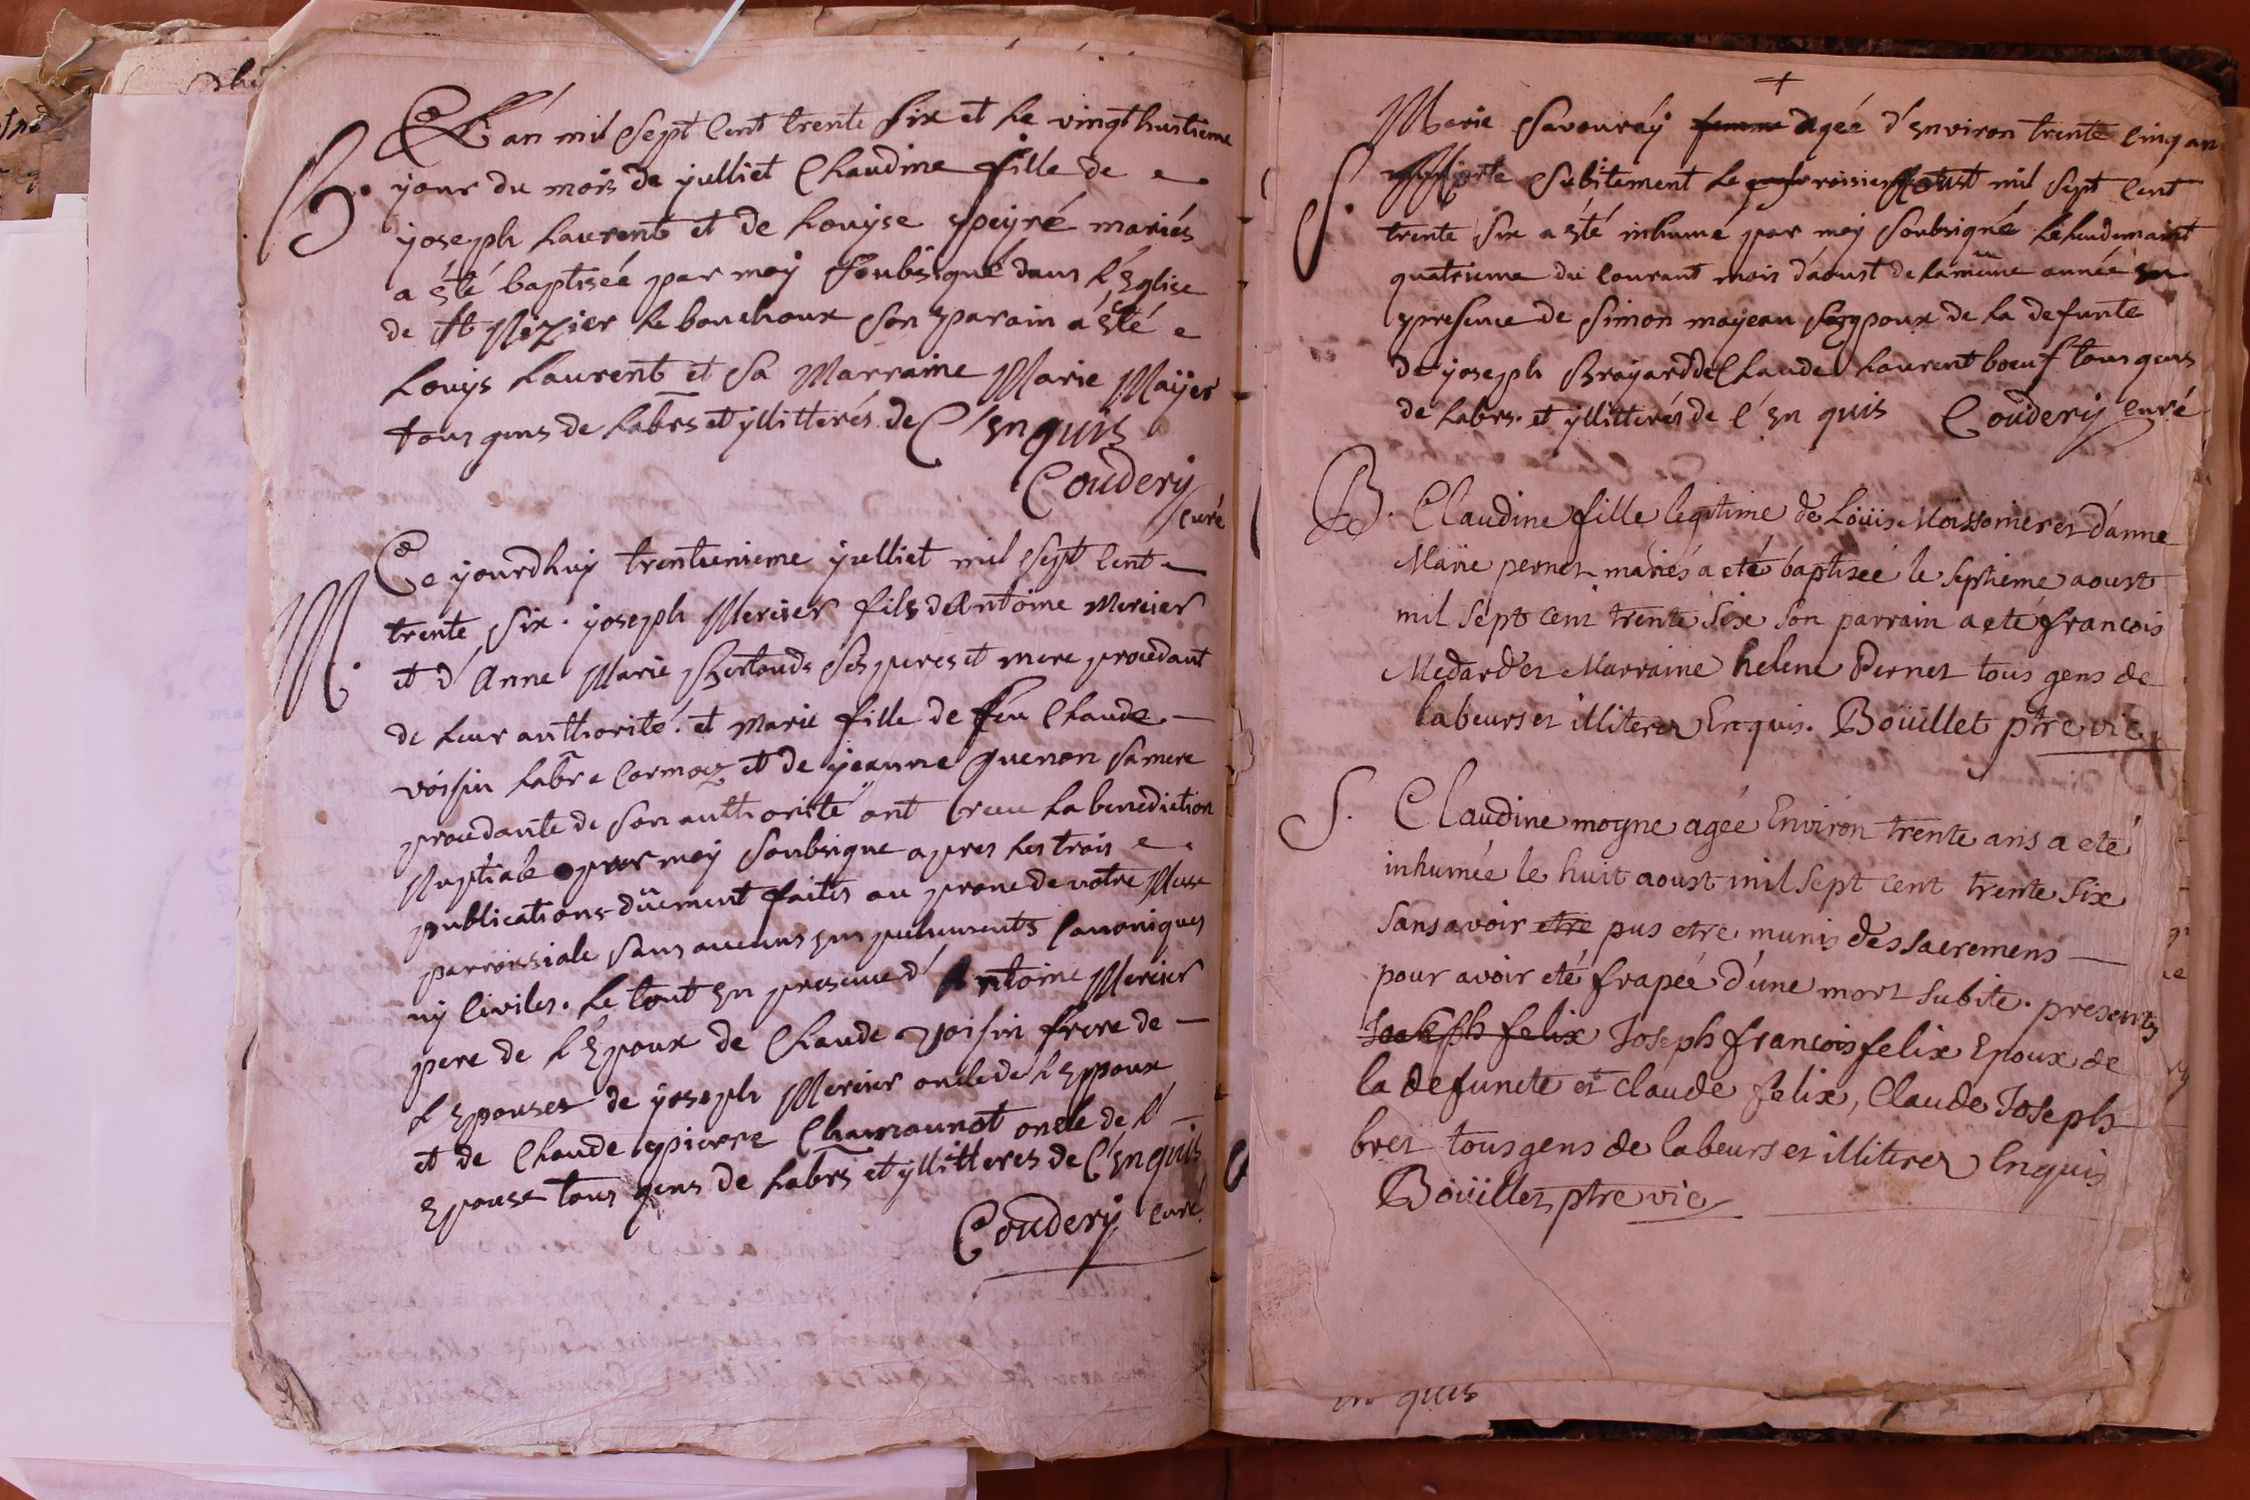 B.
L'an mil sept cent trente six et le vingt huitieme
jour du mois de julliet Claudine fille de
joseph Laurent et de Louyse peyré mariés
a été baptiseé par moy soubsigné dans l'Eglise
de St Nizier le bouchoux son parain a été
Louys Laurent et sa Marraine Marie Maÿer
tous gens de Labrs et yllitterés de C'enquis
Coudery
curé
M.
Ce jourdhuy trentunieme julliet mil sept cent
trente six. joseph Mercier fils d'Antoine Mercier
et d'Anne Marie Bertouds ses peres et mere procedant
de leur authorité. et Marie fille de feu Claude
voisin Labr a Cormoz et de jeanne guenon sa mere
procedante de son authorité ont receu la benediction
Nuptiale par moy soubsigne apres les trois
publications düement faites au prone de notre Messe
parroissiale sans aucuns empechements Canoniques
ny Civiles. Le tout en presence d'Antoine Mercier
pere de l'Epoux de Claude Voisin frere de
l'Epouses de joseph Mercier oncle de l'Eppoux
et de Claude pierre Chamaunot oncle de l'
Epouse tous gens de Labrs et yllitteres de C'enquis
Coudery curé
+
Marie Savouréy femme ageé d'environ trente cinq an
S.
Morte subitement le troisier aoust mil sept cent
trente six a été inhumé par moy soubsigné le lendemaint
quatrieme du courant mois d'aoust de la même année en
presence de Simon mayeau Eppoux de la defunte
de joseph Brayard de Claude Laurent boeuf tous gens
de Labrs. et yllitterés de C'en quis Coudery curé
B. Claudine fille legitime de Loüis Moissonier et d'anne
Marie pernet mariés a eté baptiseé le septieme aoust
mil sept cent trente six son parrain a eté francois
Medard et Marraine helene Pernet tous gens de
labeurs et illiterez Enquis. Boüillet ptre vic
S. Claudine moyne ageé Environ trente ans a eté
inhumée le huit aoust mil sept cent trente six
sans avoir etre pus etre munis des sacremens
pour avoir eté frapeé d'une mort subite. presents
Joseph felix Joseph francois felix Epoux de
la defuncte et claude felix, Claude Joseph
bret tous gens de labeurs et illiterez Enquis
Boüillet ptre vic
en quis